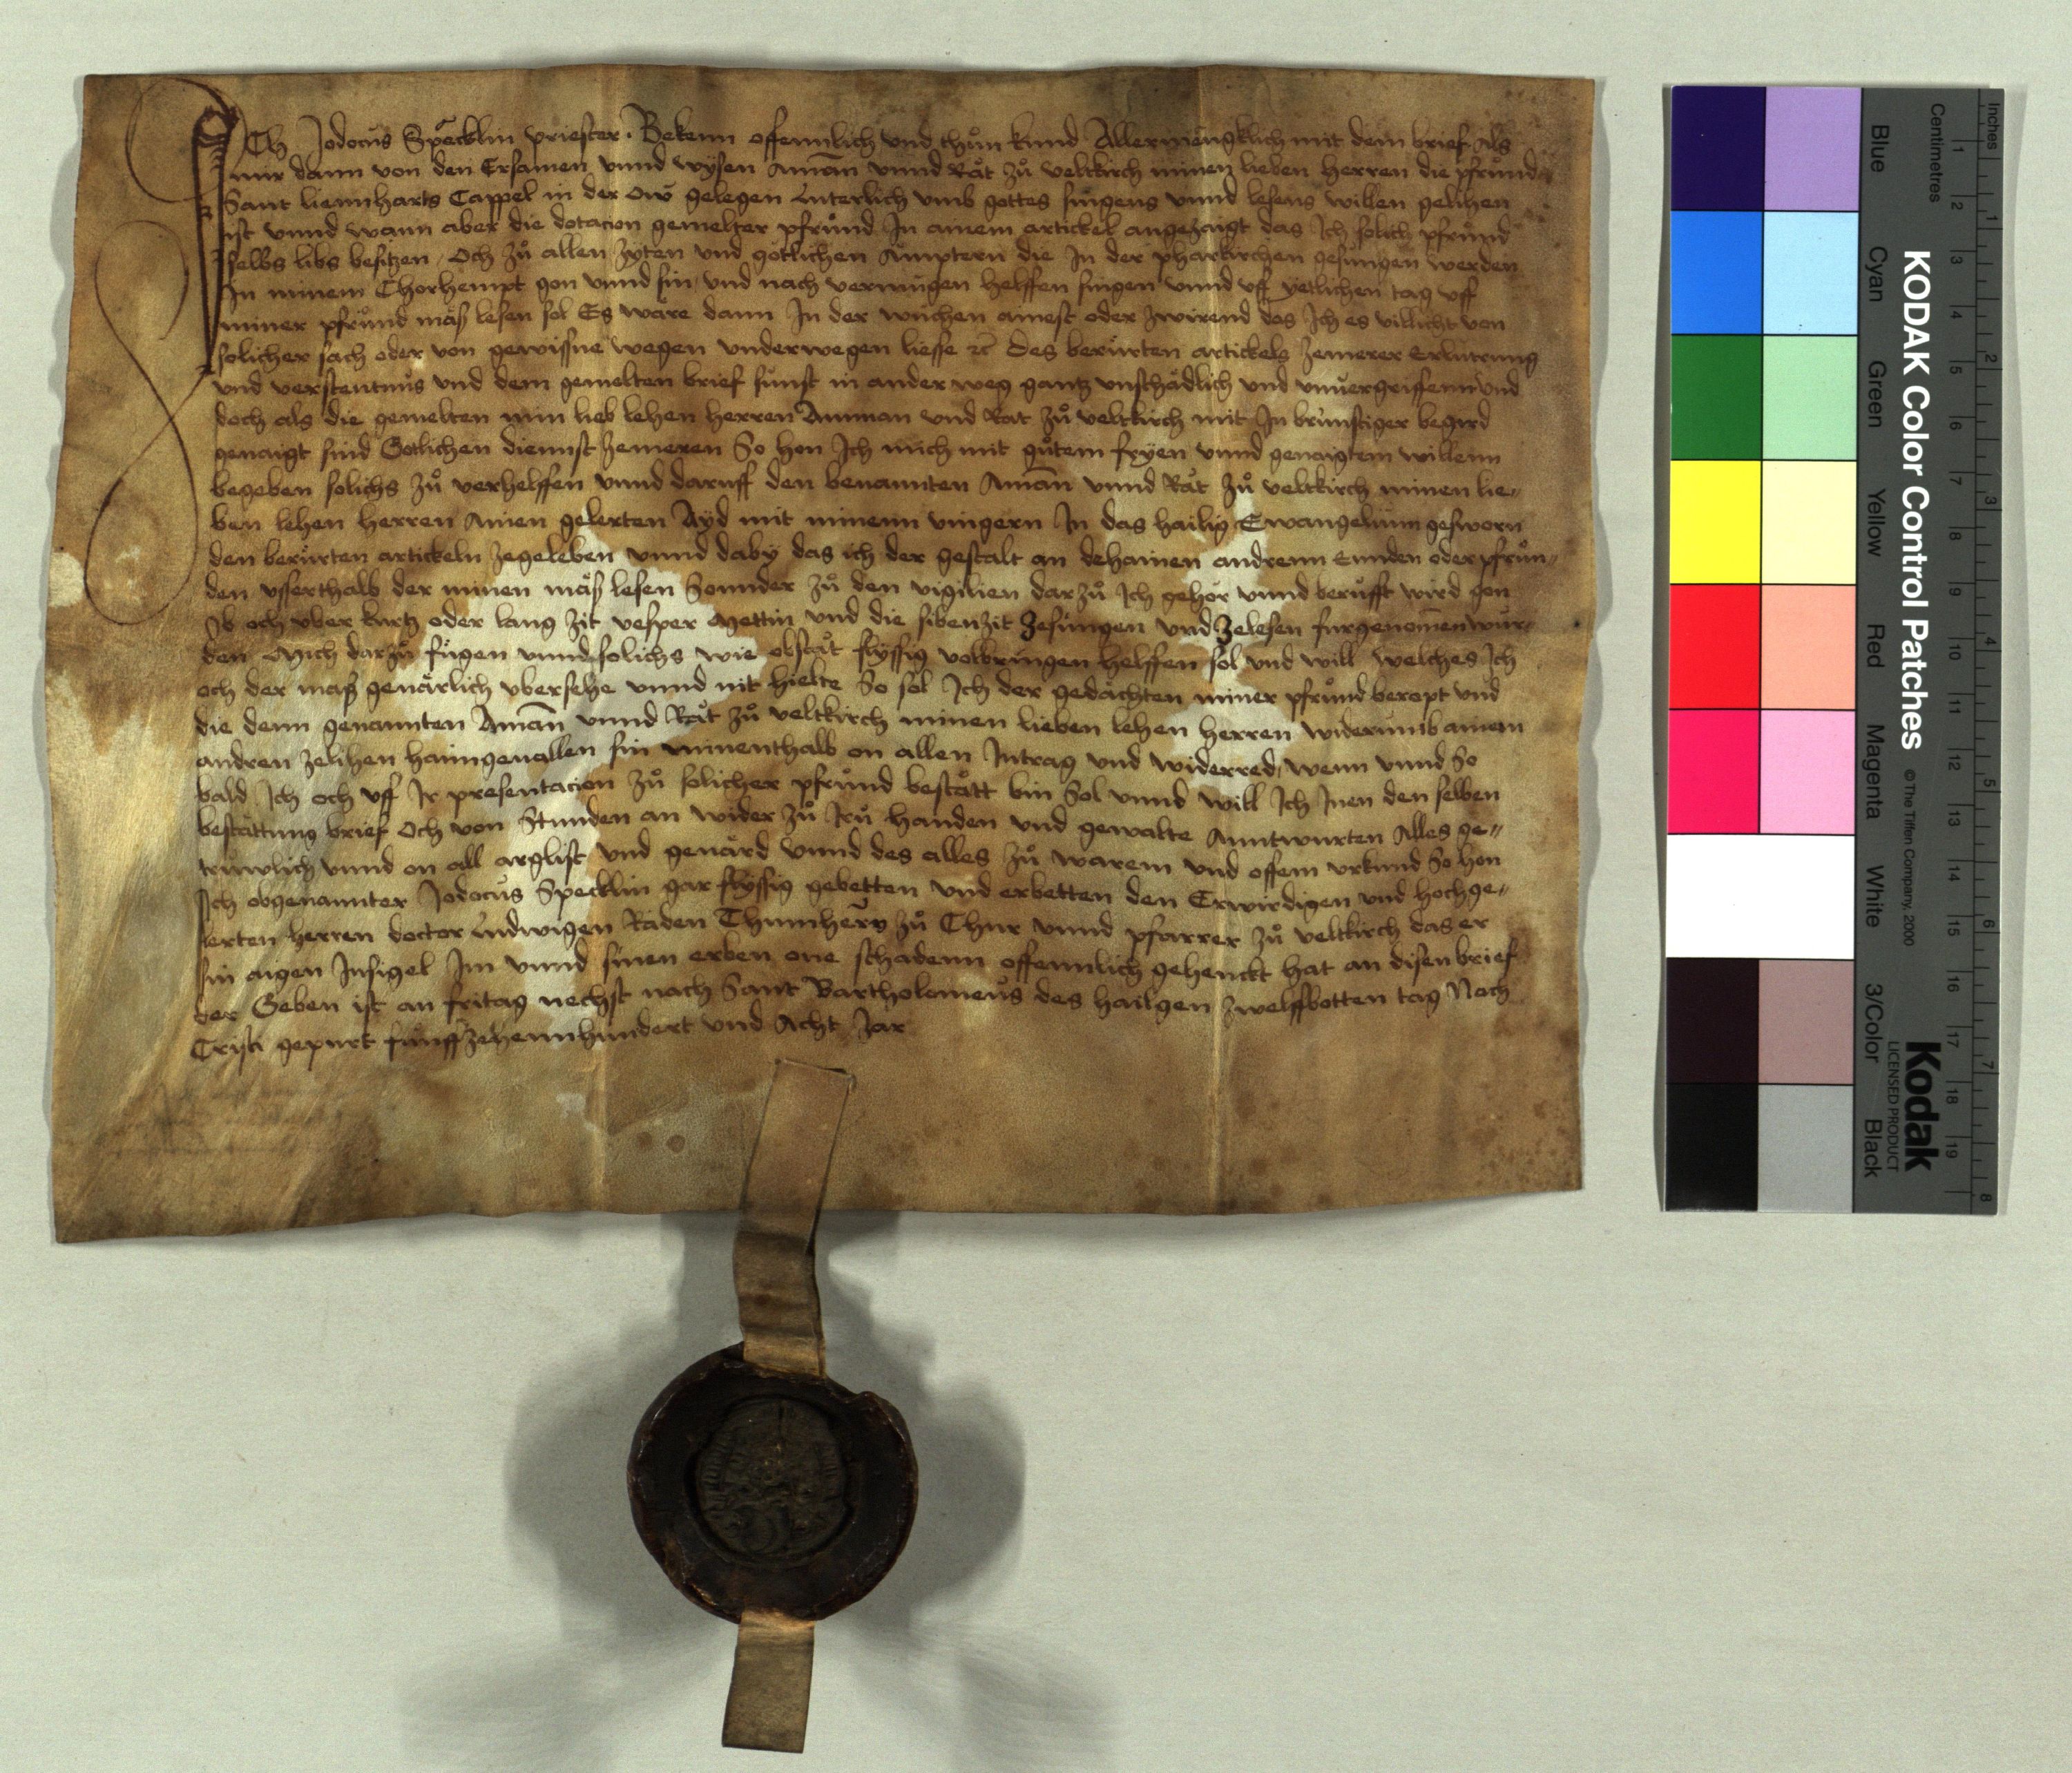 ICh Jodocus Späcklin priester Bekenn offennlich vnd thůn kund Allermengklich mit dem brief Als
mir dann von den Ersamen vnnd wysen Aman̄ vnnd Rät zů veltkirch minen lieben herren die pfrůnd
Sant liennharts Cappel in der ow gelegen luterlich vmb gottes singens vnnd lesens willen gelihen
ist vnnd wann aber die dotacion gemelter pfrůnd In ainem artickel angezaigt das Ich solich pfrůnd
selbs libs besitzen, Och zů allen zyten vnd götlichen ämptern die In der pharkirchen gesungen werden
In minem Chorhempt gon vnnd sin, vnd nach vermugen helffen singen vnnd vff yetlichen tag vff
miner pfrůnd mäß lesen sol Es ware dann In der wuchen ainest oder zwirend das Ich es villicht von
solicher sach oder von gewissne wegen vnderwegen liesse ꝛc Des berürten artickels zemerer Erlutrung
vnd verstentnus vnd dem gemelten brief sunst in ander weg gantz vnschädlich vnd vnuergriffenn vnd
doch als die gemelten min lieb lehen herren Amman vnd Rat zů veltkirch mit In brünstiger begird
genaigt sind Götlichen diennst zemeren So hon Ich mich mit gůtem fryen vnnd genaigtem willenn
begeben solichs zů verhelffen vnnd daruff den benannten Aman̄ vnnd Rät zů veltkirch minen lie-
ben lehen herren Ainen gelerten Ayd mit minenn vingern In das hailig Ewangelium gesworn
den berürten artickeln zegeleben vnnd daby das ich der gestalt an dehainen andrenn Ennden oder pfrůn-
den vsserthalb der minen mäß lesen Sonnder zů den vigilien darzů Ich gehör vnnd berufft wird gon
Ob och vber kurtz oder lang zit vesper Mettin vnd die sibenzit zesungen vnd zelesen furgenomen wur-
den Mich darzů fügen vnnd solichs wie obstät flyssig volbringen helffen sol vnd will Welches Ich
och der maß geuärlich vbersehe vnnd nit hielte So sol Ich der gedächten miner pfrůnd beropt vnd
die denn genannten Aman̄ vnnd Rät zů veltkirch minen lieben lehen herren widerumb ainem
andren zelihen haimgeuallen sin minenthalb on allen Intrag vnd widerred, wenn vnnd So
bald Ich och vff Ir presentacion zů solicher pfrůnd bestätt bin Sol vnnd will Ich Inen den selben
bestättung brief Och von Stunden an wider zů Iru handen vnd gewalte Anntwurten Alles ge-
trüwlich vnnd on all arglist vnd geuärd Vnnd des alles zů warem vnd offem vrkund So hon
Ich obgenannter Jodocus Specklin gar flyssig gebetten vnd erbetten den Erwirdigen vnd hochge-
lerten herren doctor ludwigen Räden Thumhern zů Chur vnnd pfarrer zů veltkirch das er
sin aigen Insigel Im vnnd sinen erben one schadenn offennlich gehenckt hat an disen brief
der Geben ist an fritag nechst nach Sant Bartholomeus des hailgen zwelffbotten tag Nach
Cristi gepurt funffzehennhundert vnd Acht Jar
KODAK Color Control Patches
© The Tiffen Company, 2000
Kodak
LICENSED PRODUCT
Blue
Cyan
Green
Yellow
Red
Magenta
White
3/Color
Black
Centimetres
1 2 3 4 5 6 7 8 9 10 11 12 13 14 15 16 17 18 19
Inches
1 2 3 4 5 6 7 8